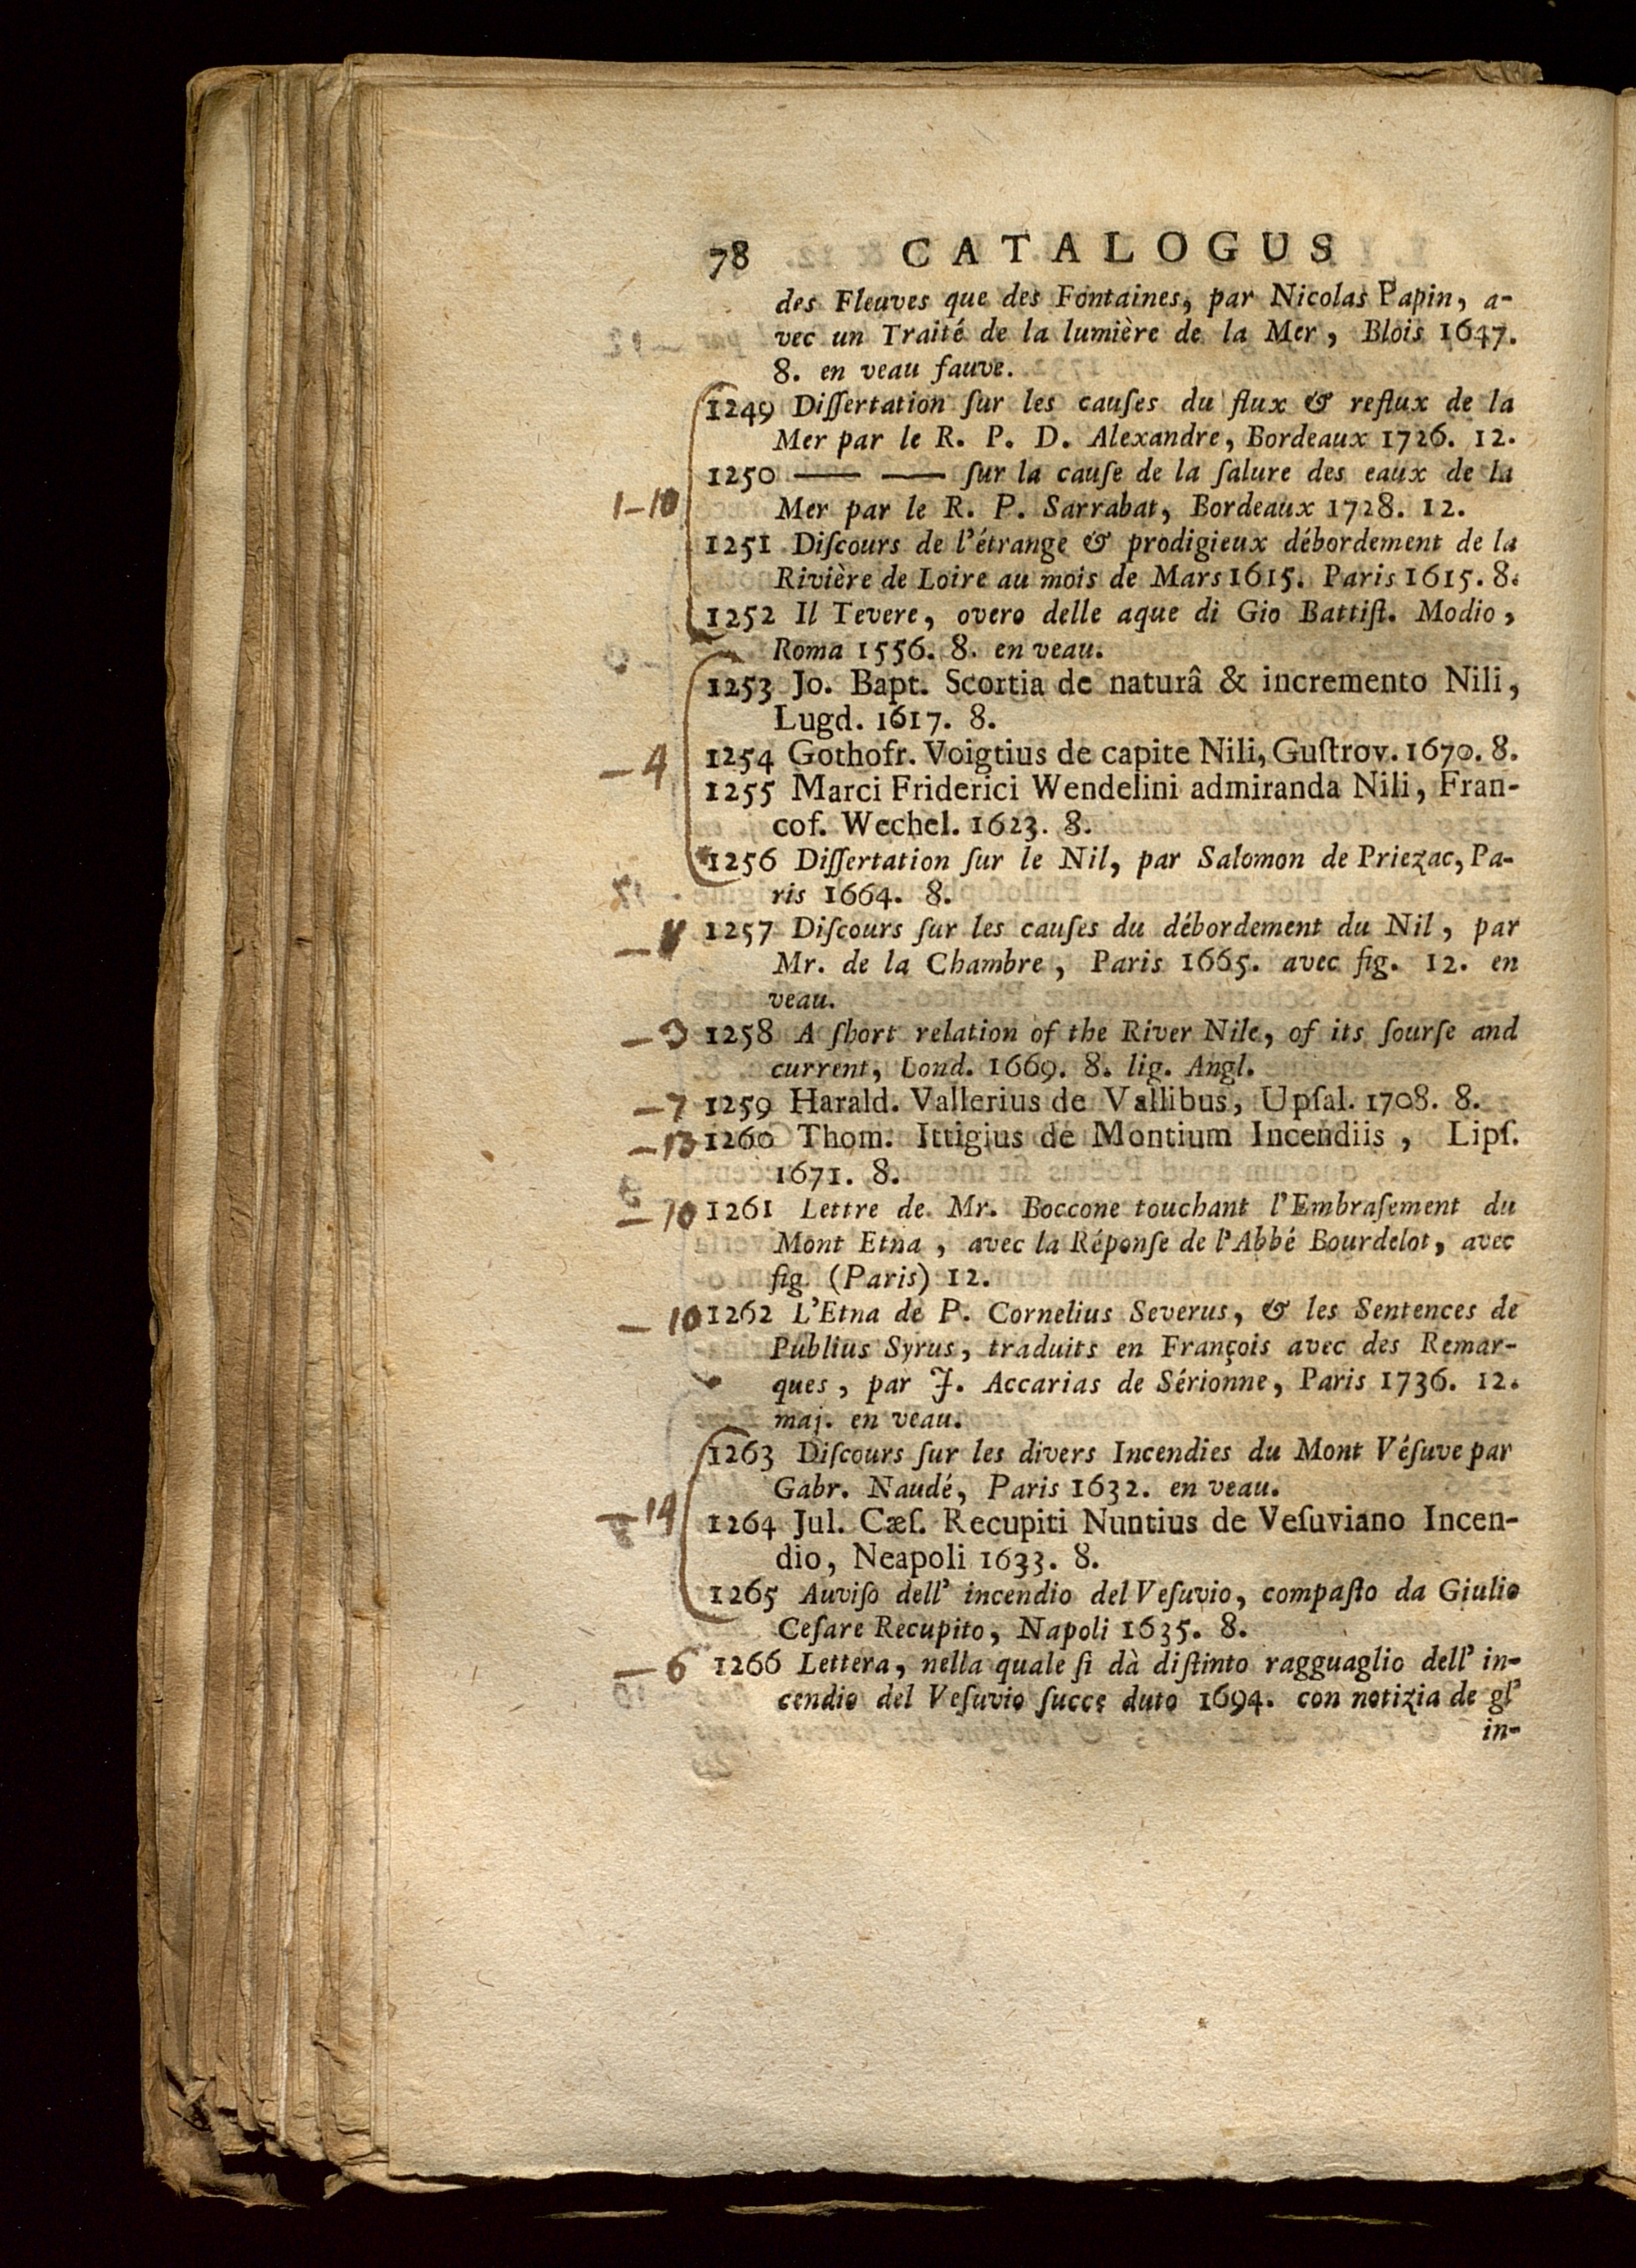 78 CATALOGUS
des Fleuves que des Fontaines, par Nicolas Papin, a-
vec un Traité de la lumière de la Mer, Blois 1647.
8. en veau fauve.
1249 Diſſertation ſur les cauſes du flux & reflux de la
Mer par le R. P. D. Alexandre, Bordeaux 1726. 12.
1250 —— —— ſur la cauſe de la ſalure des eaux de la
1-10 Mer par le R. P. Sarrabat, Bordeaux 1728. 12.
1251 Diſcours de l'étrange & prodigieux débordement de la
Rivière de Loire au mois de Mars 1615. Paris 1615. 8.
1252 Il Tevere, overo delle aque di Gio Battiſt. Modio,
Roma 1556. 8. en veau.
1253 Jo. Bapt. Scortia de naturâ & incremento Nili,
Lugd. 1617. 8.
-4 1254 Gothofr. Voigtius de capite Nili, Guſtrov. 1670. 8.
1255 Marci Friderici Wendelini admiranda Nili, Fran-
cof. Wechel. 1623. 8.
1256 Diſſertation ſur le Nil, par Salomon de Priezac, Pa-
ris 1664. 8.
1257 Diſcours ſur les cauſes du débordement du Nil, par
Mr. de la Chambre, Paris 1665. avec fig. 12. en
veau.
1258 A ſhort relation of the River Nile, of its ſourſe and
current, Lond. 1669. 8. lig. Angl.
-7 1259 Harald. Vallerius de Vallibus, Upſal. 1708. 8.
-13 1260 Thom. Ittigius de Montium Incendiis, Lipſ.
1671. 8.
-10 1261 Lettre de Mr. Boccone touchant l'Embraſement du
Mont Etna, avec la Réponſe de l'Abbé Bourdelot, avec
fig. (Paris) 12.
-10 1262 L'Etna de P. Cornelius Severus, & les Sentences de
Publius Syrus, traduits en François avec des Remar-
ques, par J. Accarias de Sérionne, Paris 1736. 12.
maj. en veau.
1263 Diſcours ſur les divers Incendies du Mont Véſuve par
Gabr. Naudé, Paris 1632. en veau.
-14 1264 Jul. Cæſ. Recupiti Nuntius de Veſuviano Incen-
dio, Neapoli 1633. 8.
1265 Auviſo dell' incendio del Veſuvio, compaſto da Giulio
Ceſare Recupito, Napoli 1635. 8.
-6 1266 Lettera, nella quale ſi dà diſtinto ragguaglio dell' in-
cendio del Veſuvio ſucce duto 1694. con notizia de gl'
in-